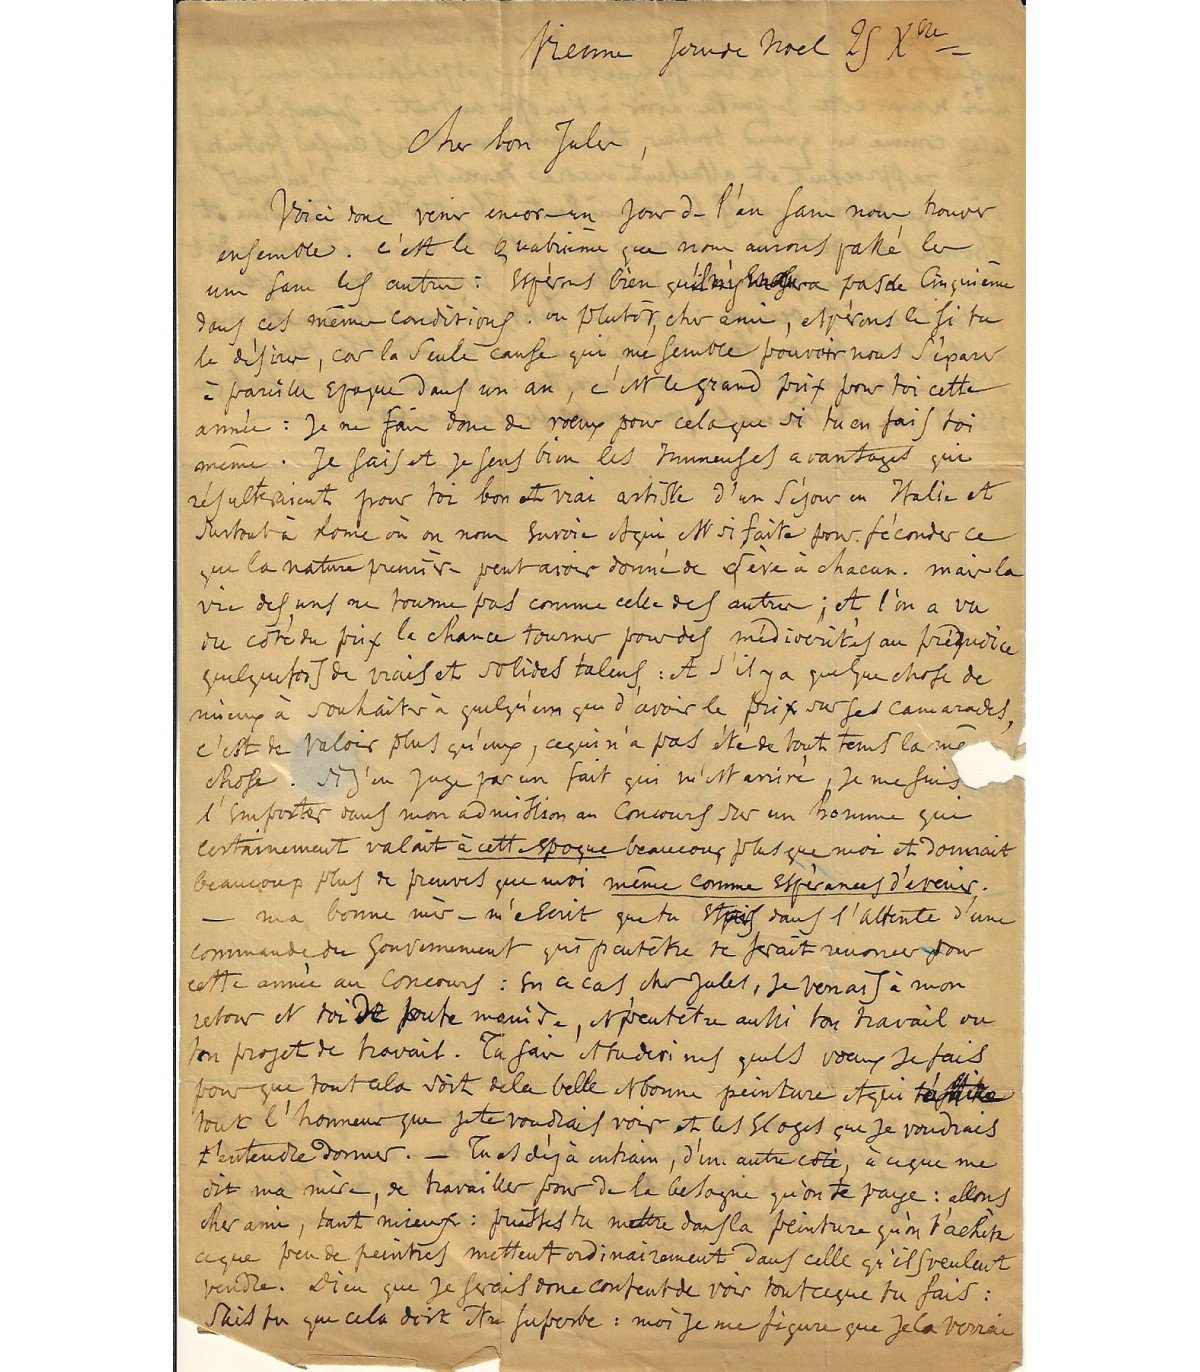 Vienne Jour de Noel 25 Xbre
Cher bon Jules,
Voici donc venir encore un jour de l'an sans nous trouver
ensemble. c'est le quatrième que nous aurons passé les
uns sans les autres : Espérons bien qu'il n'y en aura pas de cinquième
dans ces mêmes conditions. ou plutôt, cher ami, espérons le si tu
le désires, car la seule cause qui me semble pouvoir nous séparer
à pareille Epoque dans un an, c'est le grand prix pour toi cette
année : Je ne fais donc de voeux pour cela que si tu en fais toi
même. Je sais et je sens bien les Immenses avantages qui
résulteraient pour toi bon et vrai artiste d'un séjour en Italie et
surtout à Rome où on nous Envoie et qui est si faite pour féconder ce
que la nature première peut avoir donné de sève à chacun. mais la
vie des uns ne tourne pas comme celle des autres ; et l'on a vu
du côté du prix la chance tourner pour des médiocrités au préjudice
quelquefois de vrais et solides talens : et s'il y a quelque chose de
mieux à souhaiter à quelqu'un que d'avoir le prix sur ses camarades,
c'est de valoir plus qu'eux, ce qui n'a pas été de tout tems la mê
chose. Si j'en juge par un fait qui m'est arrivé, Je me suis
l'Emporter dans mon admission au Concours sur un homme qui
certainement valait à cette époque beaucoup plus que moi et donnait
beaucoup plus de preuves que moi même comme Espérances d'avenir.
— ma bonne mère m'écrit que tu Etais dans l'attente d'une
commande du Gouvernement qui peutêtre te ferait renoncer pour
cette année au Concours : En ce cas cher Jules, je verrais à mon
retour et toi de toute manière, et peutêtre aussi ton travail ou
ton projet de travail. Tu sais et tu devines quels voeux je fais
pour que tout cela soit de la belle et bonne peinture et qui
tout l'honneur que je te voudrais voir et les Eloges que je voudrais
t'entendre donner. — Tu es déjà entrain, d'un autre côté, à ce que me
dit ma mère, de travailler pour de la besogne qu'on te paye : allons
cher ami, tant mieux : puisses tu mettre dans la peinture qu'on t'achète
ce que peu de peintres mettent ordinairement dans celle qu'ils veulent
vendre. Dieu que je serais donc content de voir tout ce que tu fais :
Sais tu que cela doit être superbe : moi je me figure que je la verrai